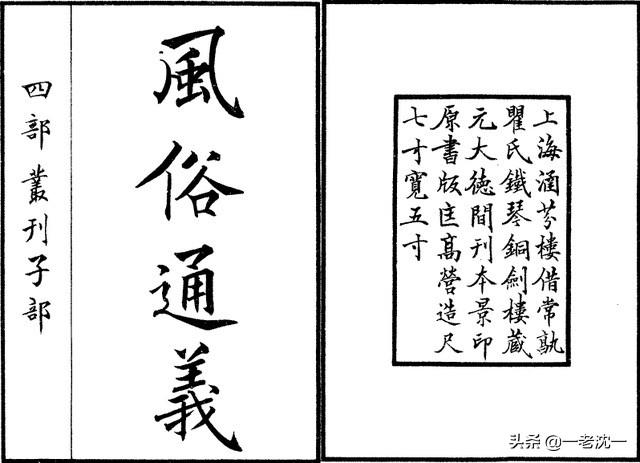 風俗通義
四部叢刊子部
上海涵芬樓借常孰
瞿氏鐵琴銅劍樓藏
元大徳間刊本景印
原書版匡髙營造尺
七寸寬五寸
头条 @一老沈一